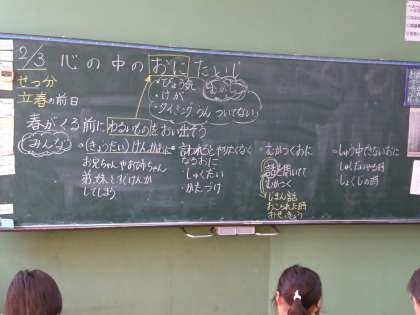 2/3 心の中のおにたいじ
せつ分
立春の前日
・びょう気
・けが
・タイミング うん ついてない
むかし
春がくる前にわるいものをおい出そう
みんな
・きょうだいけんかおに
お兄ちゃんやお姉ちゃん
弟、妹とすぐけんか
してしまう
・言われるとやりたくなく
なるおに
・しゅくだい
・かたづけ
・むかつくおに
話を聞いてて
むかつく
じまん話
おこられた時
おせっきょう
・しゅう中できないおに
しゅくだいやる時
しょくじの時